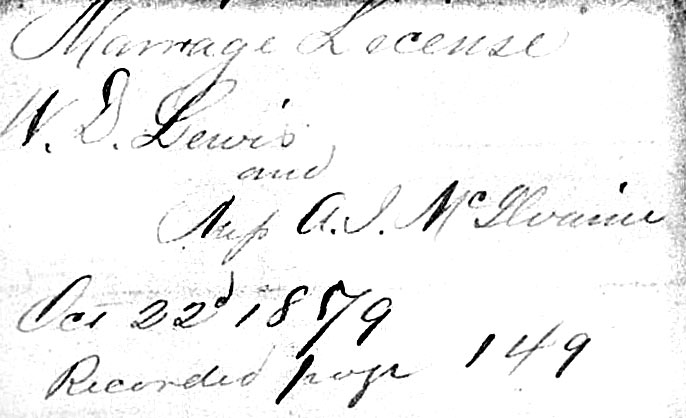 Marrage License
W. D. Lewis
and
Miss A. J. McIlvaine
Oct 22d 1879
Recorded page 149